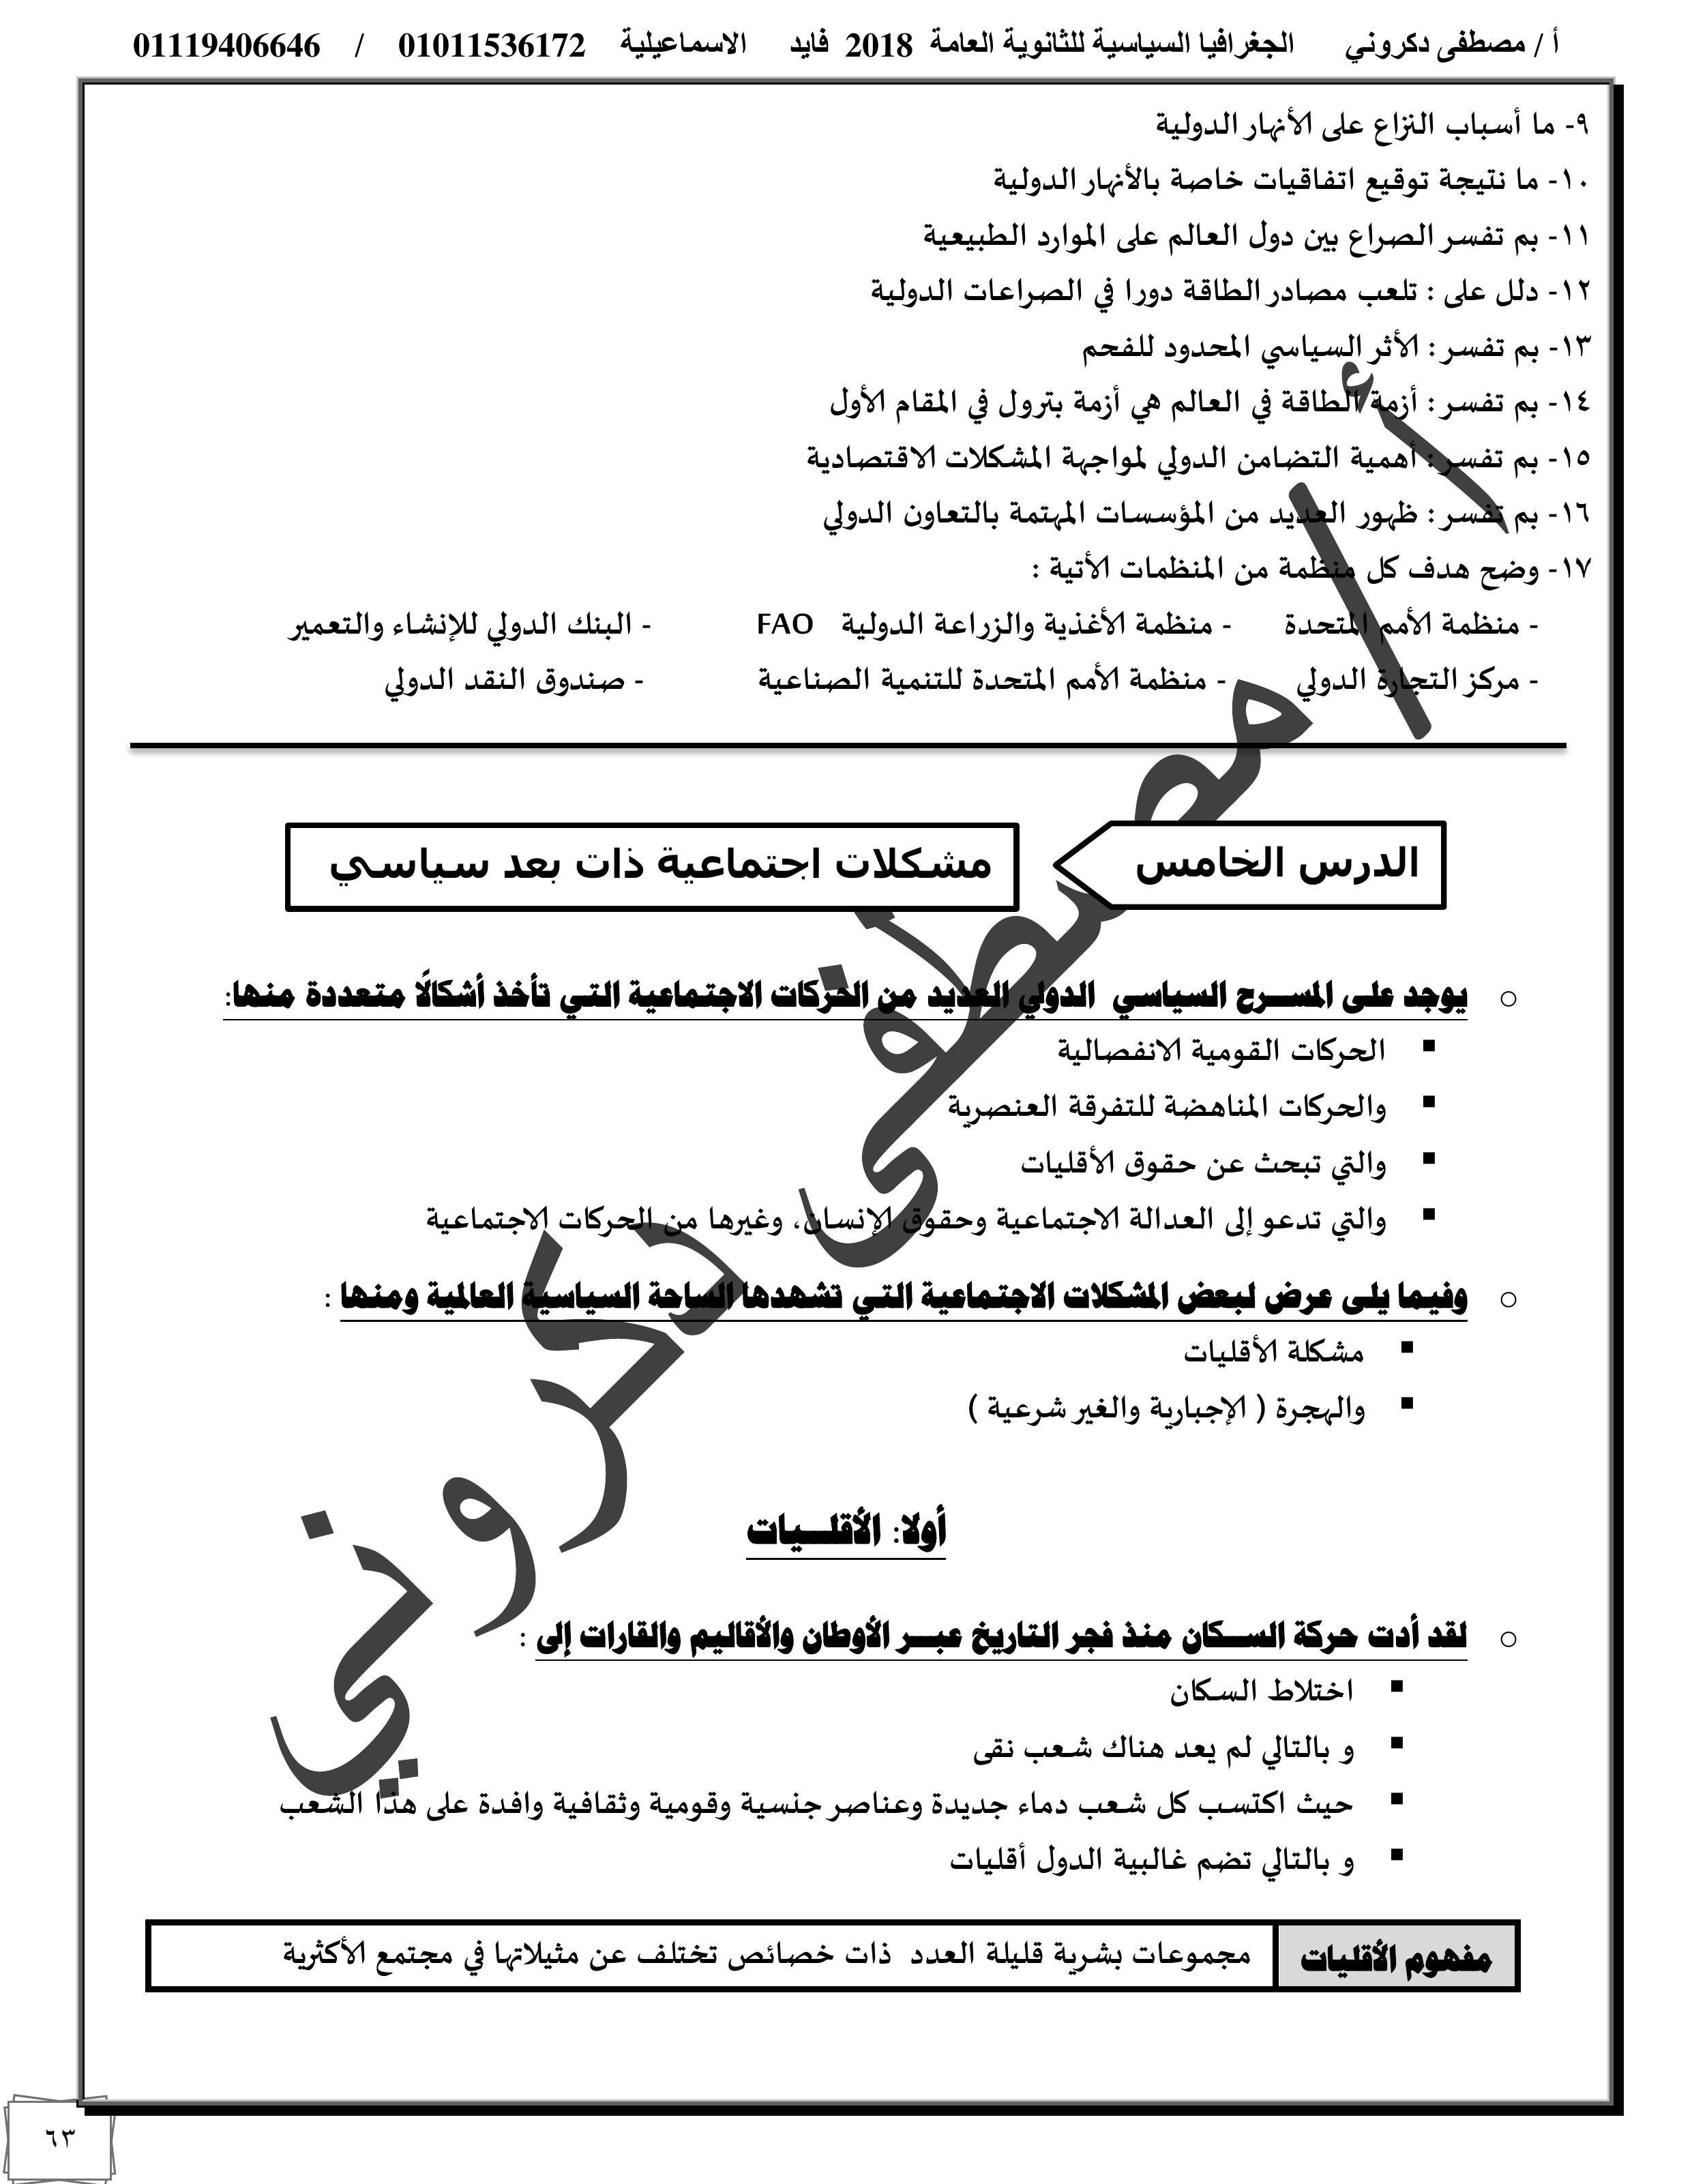 أ / مصطفى دكروني الجغرافيا السياسية للثانوية العامة 2018 فايد الاسماعيلية 01011536172 / 01119406646
٩- ما أسباب النزاع على الأنهار الدولية
١٠- ما نتيجة توقيع اتفاقيات خاصة بالأنهار الدولية
١١- بم تفسر الصراع بين دول العالم على الموارد الطبيعية
١٢- دلل على : تلعب مصادر الطاقة دورا في الصراعات الدولية
١٣- بم تفسر : الأثر السياسي المحدود للفحم
١٤- بم تفسر : أزمة الطاقة في العالم هي أزمة بترول في المقام الأول
١٥- بم تفسر : أهمية التضامن الدولي لمواجهة المشكلات الاقتصادية
١٦- بم تفسر : ظهور العديد من المؤسسات المهتمة بالتعاون الدولي
١٧- وضح هدف كل منظمة من المنظمات الأتية :
- منظمة الأمم المتحدة - منظمة الأغذية والزراعة الدولية FAO - البنك الدولي للإنشاء والتعمير
- مركز التجارة الدولي - منظمة الأمم المتحدة للتنمية الصناعية - صندوق النقد الدولي
الدرس الخامس مشكلات اجتماعية ذات بعد سياسي
o يوجد على المسرح السياسي الدولي العديد من الحركات الاجتماعية التي تأخذ أشكالًا متعددة منها:
▪ الحركات القومية الانفصالية
▪ والحركات المناهضة للتفرقة العنصرية
▪ والتي تبحث عن حقوق الأقليات
▪ والتي تدعو إلى العدالة الاجتماعية وحقوق الإنسان، وغيرها من الحركات الاجتماعية
o وفيما يلى عرض لبعض المشكلات الاجتماعية التي تشهدها الساحة السياسية العالمية ومنها :
▪ مشكلة الأقليات
▪ والهجرة ( الإجبارية والغير شرعية )
أولا: الأقلـيات
o لقد أدت حركة السكان منذ فجر التاريخ عبر الأوطان والأقاليم والقارات إلى :
▪ اختلاط السكان
▪ و بالتالي لم يعد هناك شعب نقى
▪ حيث اكتسب كل شعب دماء جديدة وعناصر جنسية وقومية وثقافية وافدة على هذا الشعب
▪ و بالتالي تضم غالبية الدول أقليات
مفهوم الأقليات مجموعات بشرية قليلة العدد ذات خصائص تختلف عن مثيلاتها في مجتمع الأكثرية
أ / مصطفى دكروني
٦٣